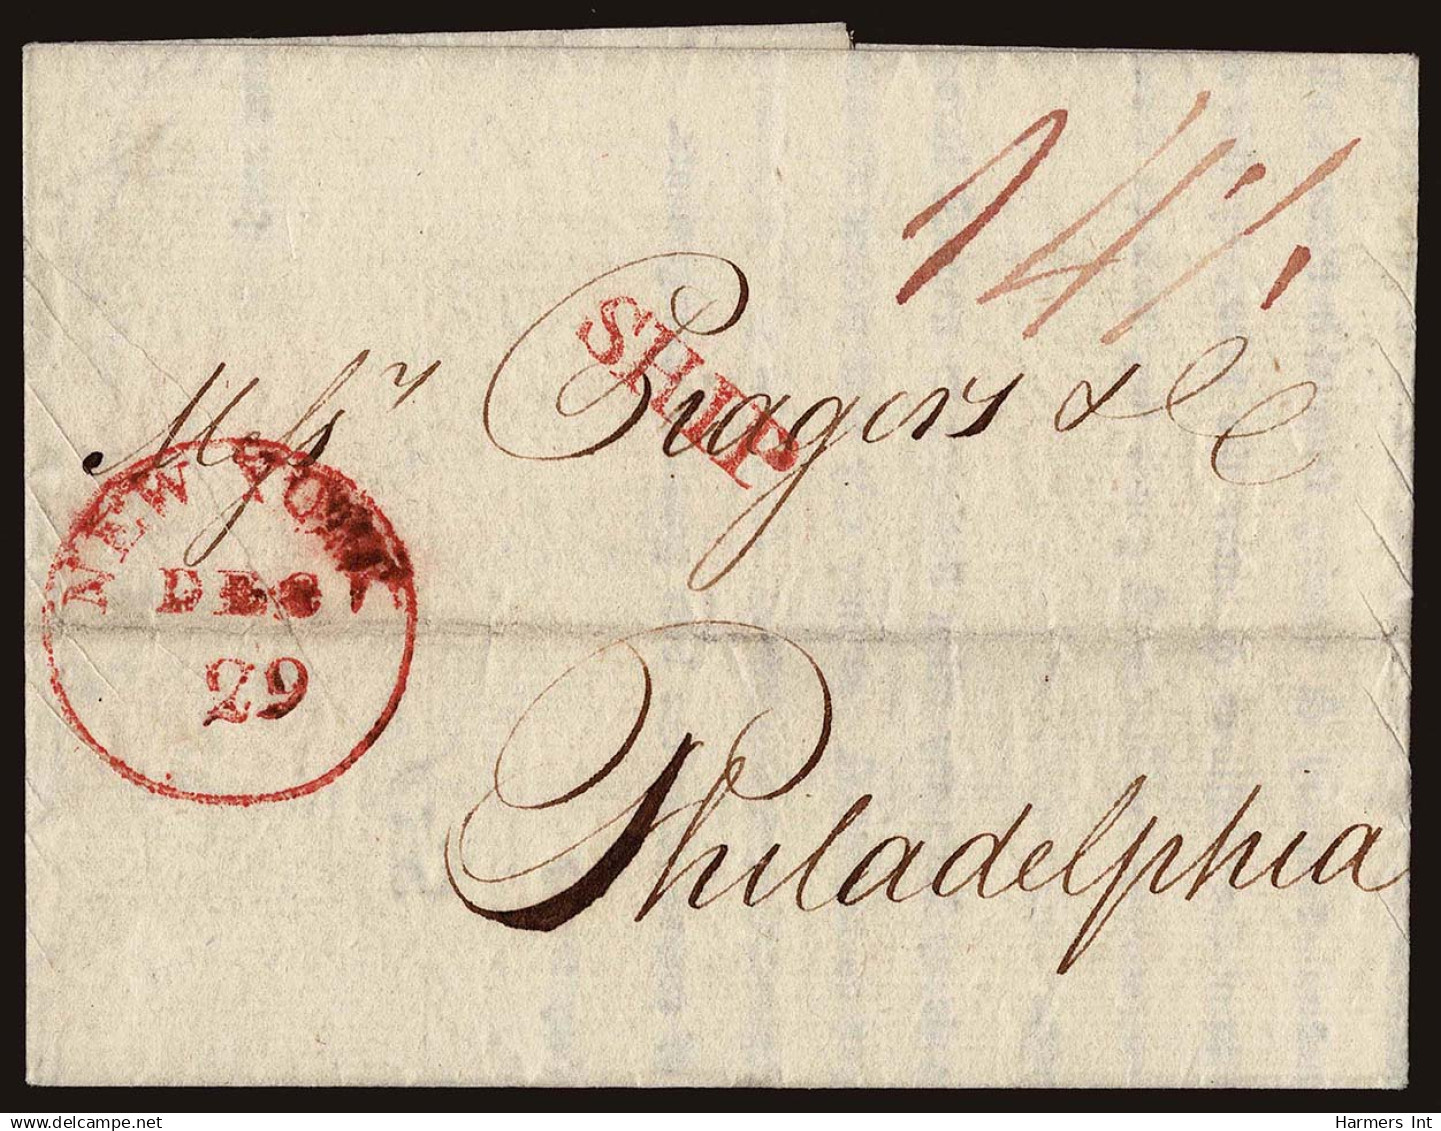 14½
SHIP
Messrs Pragers & Co
NEW YORK
DEC
29
Philadelphia
delcampe.net
Harmers Int